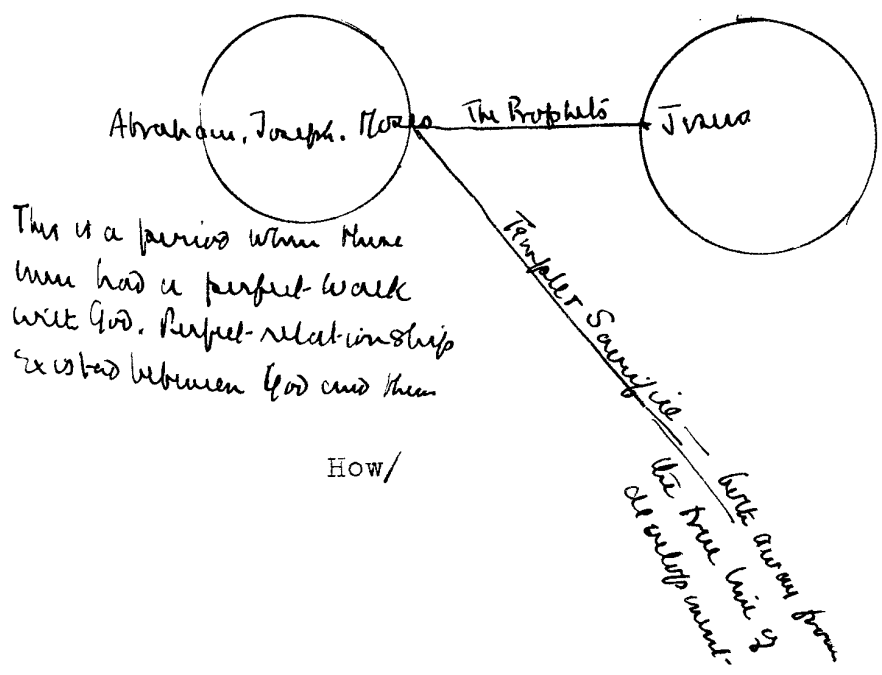 Abraham, Joseph. Moses
The Prophets
Jesus
This is a period when these
men had a perfect walk
with God. Perfect relationship
existed between God and them
Temple & Sacrifice — both away from
the true line of
development.
How/